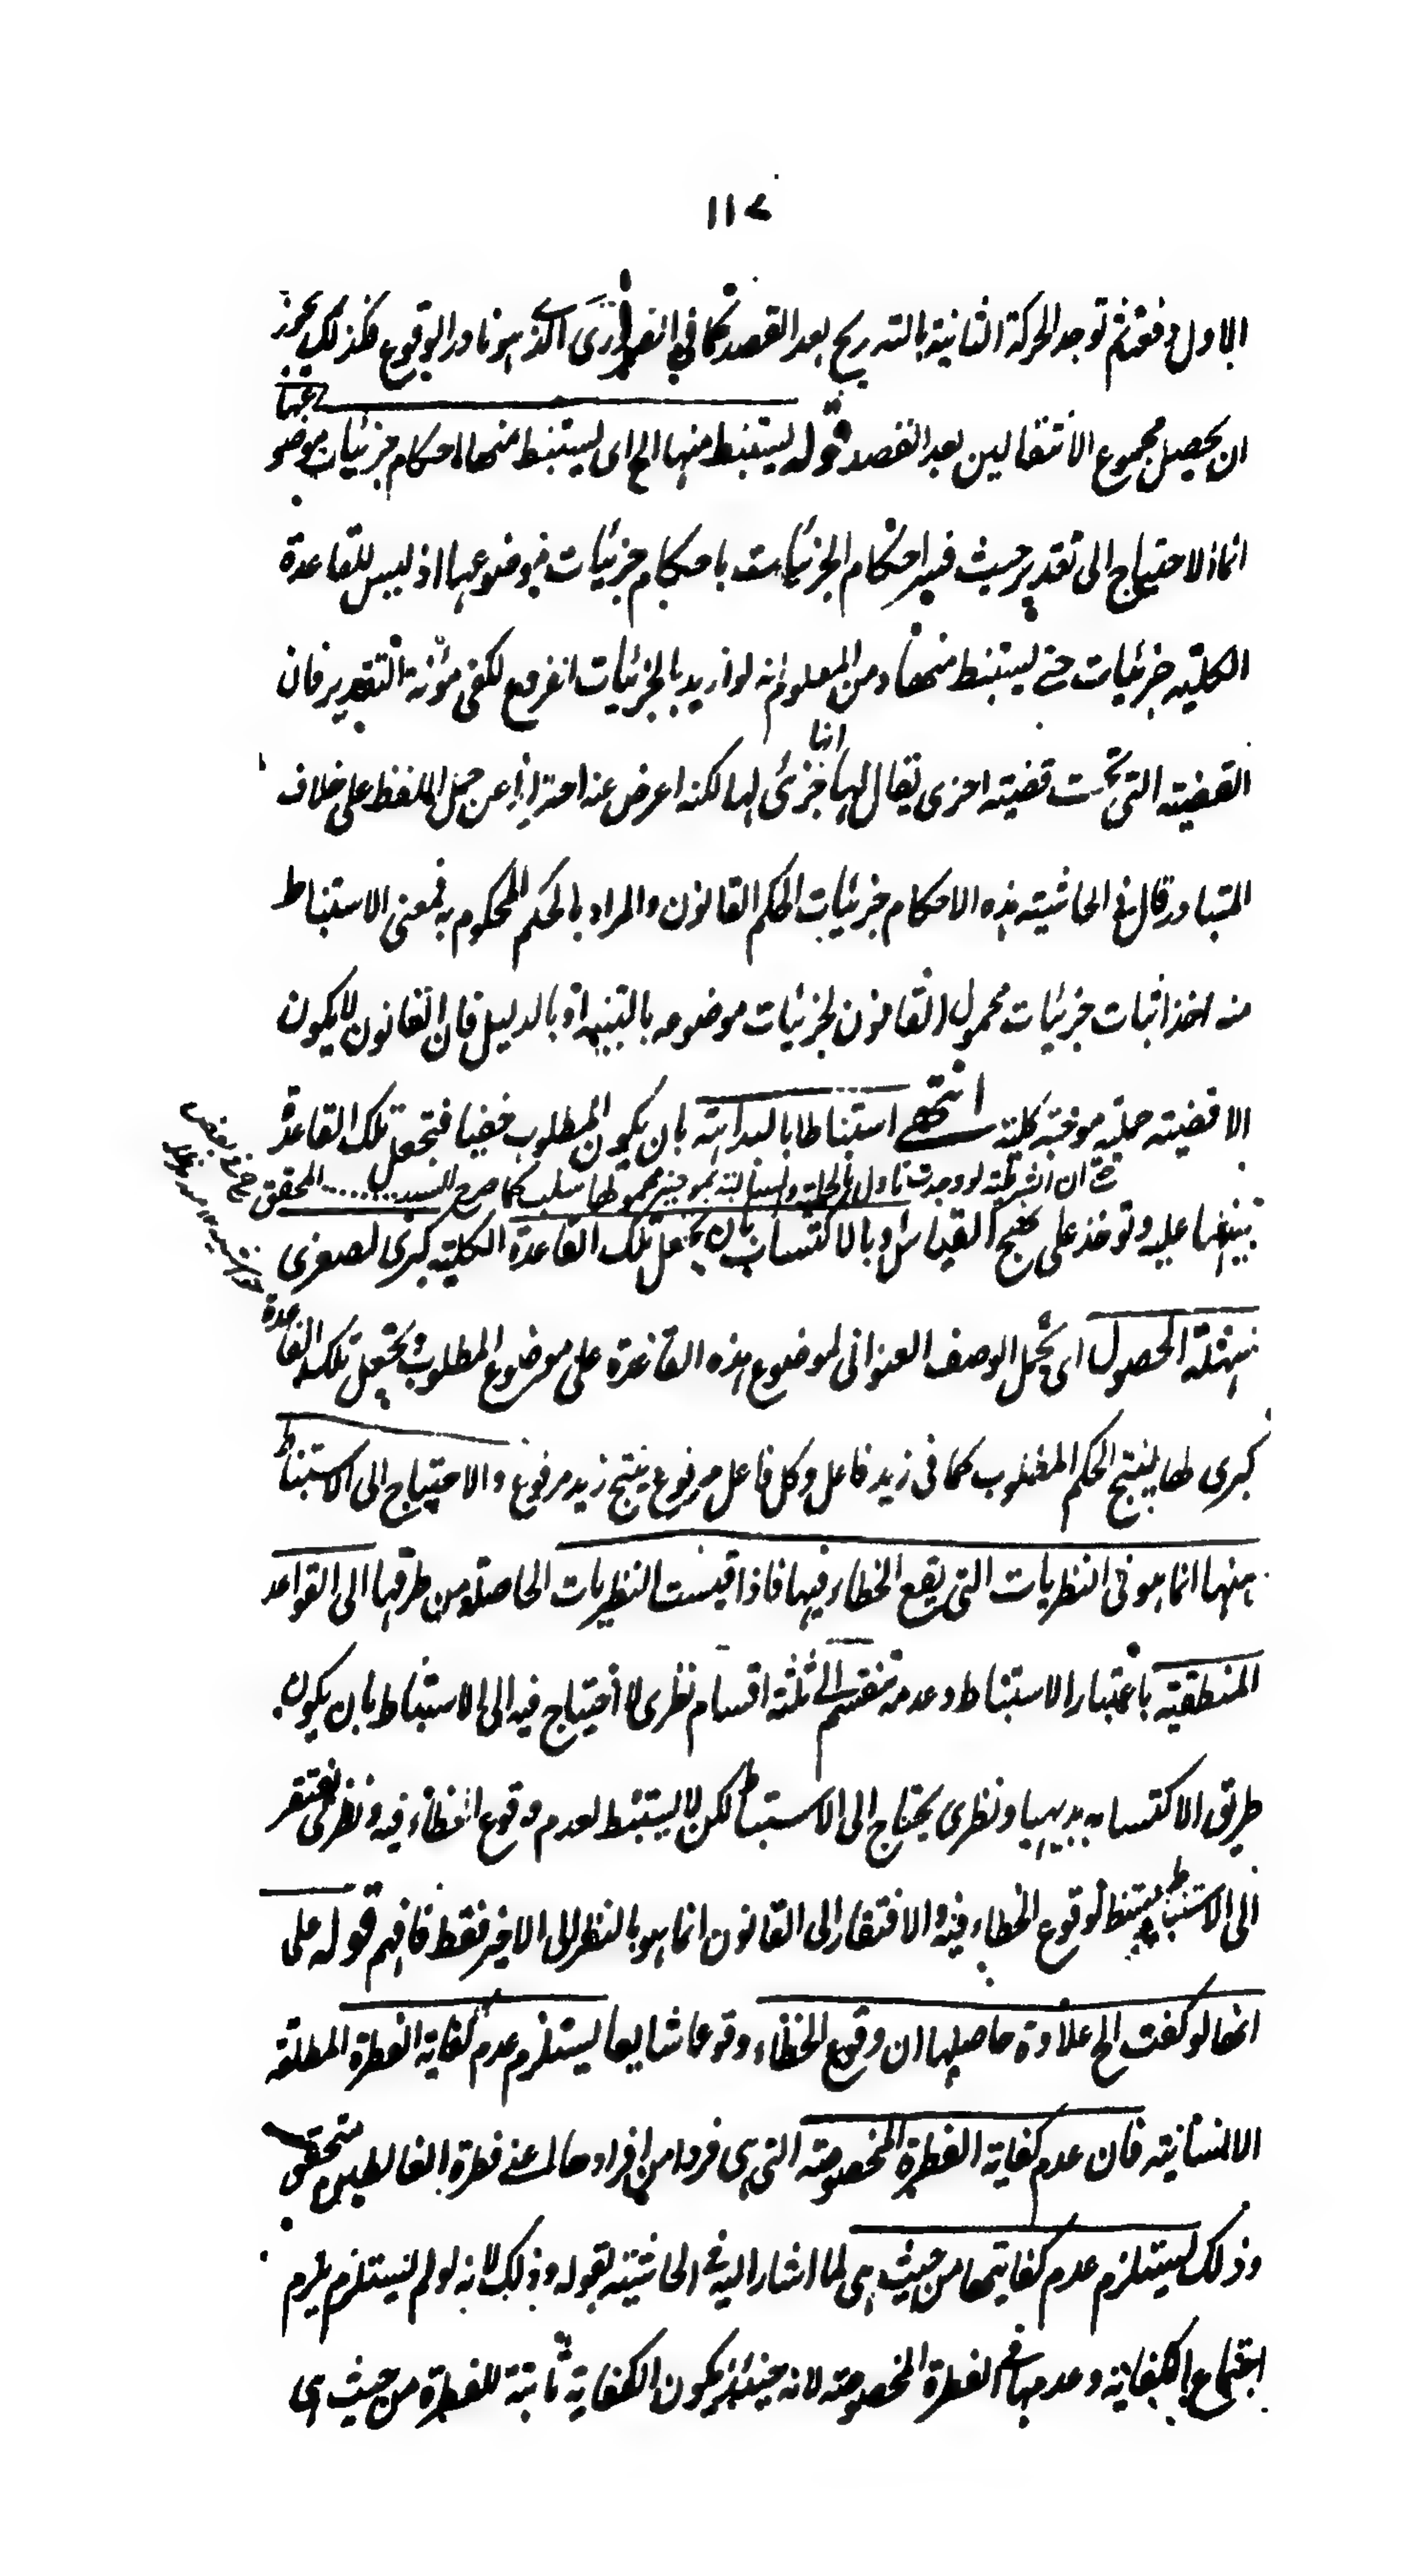 ١١٧
الاول دفعة ثم توجد الحركة الثانية بالتدريج بعد القصد كما في الذي هو نادر الوقوع فكذلك يجوز
ان يحصل مجموع الانتقالين بعد القصد قوله ليستنبط منها الخ اى ليستنبط منها احكام جزئيات موضوعها
انما الاحتياج الى تقدير حيث فسر احكام الجزئيات باحكام جزئيات موضوعها اذ ليس للقاعدة
الكلية جزئيات حتى يستنبط منها ومن المعلوم انه لو اريد بالجزئيات الفروع لكفى مؤنة التقدير فان
القضية التى تحت قضية اخرى يقال لها انها جزئى لها لكنه اعرض عنه احترازا عن حمل اللفظ على خلاف
المتبادر قال فى الحاشية هذه الاحكام جزئيات الحكم القانون والمراد بالحكم المحكوم به فمعنى الاستنباط
منه اخذ اثبات جزئيات محمول القانون لجزئيات موضوعه بالتنبيه او بالدليل فان القانون لا يكون
الا قضية حملية موجبة كلية انتهى استنباطا بالبداهة بان يكون المطلوب خفيا فتجعل تلك القاعدة
ان الشرطية لو وجدت تاول بالحملية والسالبة بموجبة محمولها سلب كما صرح السيد........ المحقق
تنبيها عليه وتوخذ على نهج القياس او بالاكتساب بان يجعل تلك القاعدة الكلية كبرى لصغرى
سهلة الحصول اى يحمل الوصف العنوانى لموضوع هذه القاعدة على موضوع المطلوب ويجعل تلك القاعدة
كبرى لها لينتج الحكم المطلوب كما فى زيد فاعل وكل فاعل مرفوع ينتج زيد مرفوع والاحتياج الى الاستنباط
منها انما هو فى النظريات التى يقع الخطاء فيها فاذا قيست النظريات الحاصلة من طرقها الى القواعد
المنطقية باعتبار الاستنباط وعدمه تنقسم الى ثلثة اقسام نظرى لا احتياج فيه الى الاستنباط بان يكون
طريق الاكتساب بديهيا ونظرى يحتاج الى الاستنباط لكن لا يستنبط لعدم وقوع الخطاء فيه ونظرى يفتقر
الى الاستنباط ويستنبط لوقوع الخطاء فيه والافتقار الى القانون انما هو بالنظر الى الاخير فقط فافهم قوله على
انها لو كفت الخ علاوة حاصلها ان وقوع الخطاء وقوعا شايعا يستلزم عدم كفاية الفطرة المطلقة
الانسانية فان عدم كفاية الفطرة المخصوصة التى هى فرد من افرادها اعنى فطرة الغالطين متحقق
وذلك يستلزم عدم كفايتها من حيث هى لما اشار اليه فى الحاشية بقوله وذلك لانه لو لم يستلزم يلزم
اجتماع الكفاية وعدمها فى الفطرة المخصوصة لانه حينئذ يكون الكفاية ثابتة للفطرة من حيث هى